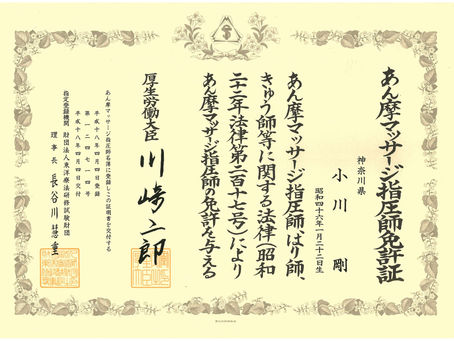 あん摩マッサージ指圧師免許証
神奈川県
小川 剛
昭和四十六年一月二十二日生
あん摩マッサージ指圧師、はり師、
きゅう師等に関する法律(昭和
二十二年法律第二百十七号)により
あん摩マッサージ指圧師の免許を与える
厚生労働大臣 川崎二郎
あん摩マッサージ指圧師名簿に登録しこの証明書を交付する
平成十八年四月四日登録
第一二四七一四号
平成十八年四月四日交付
指定登録機関 財団法人東洋療法研修試験財団
理事長 長谷川慧重